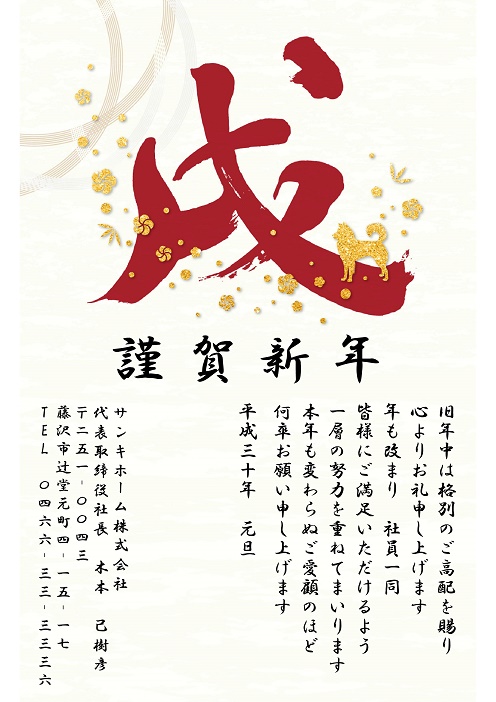 戌
謹賀新年
旧年中は格別のご高配を賜り
心よりお礼申し上げます
年も改まり　社員一同
皆様にご満足いただけるよう
一層の努力を重ねてまいります
本年も変わらぬご愛顧のほど
何卒お願い申し上げます
平成三十年　元旦
サンキホーム株式会社
代表取締役社長　木本　己樹彦
〒二五一-〇〇四三
藤沢市辻堂元町四-一五-一七
ＴＥＬ　〇四六六-三三-三三三六